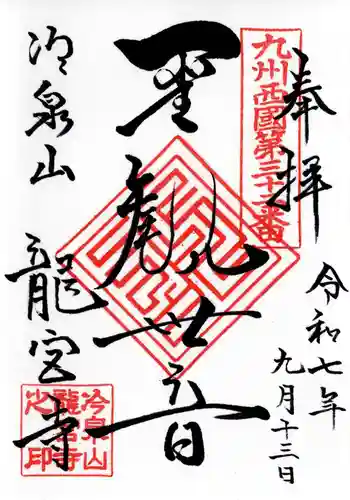 奉拝
令和七年
九月十三日
九州西國第三十三番
聖観世音
冷泉山
龍宮寺
冷泉山
龍宮寺
之印